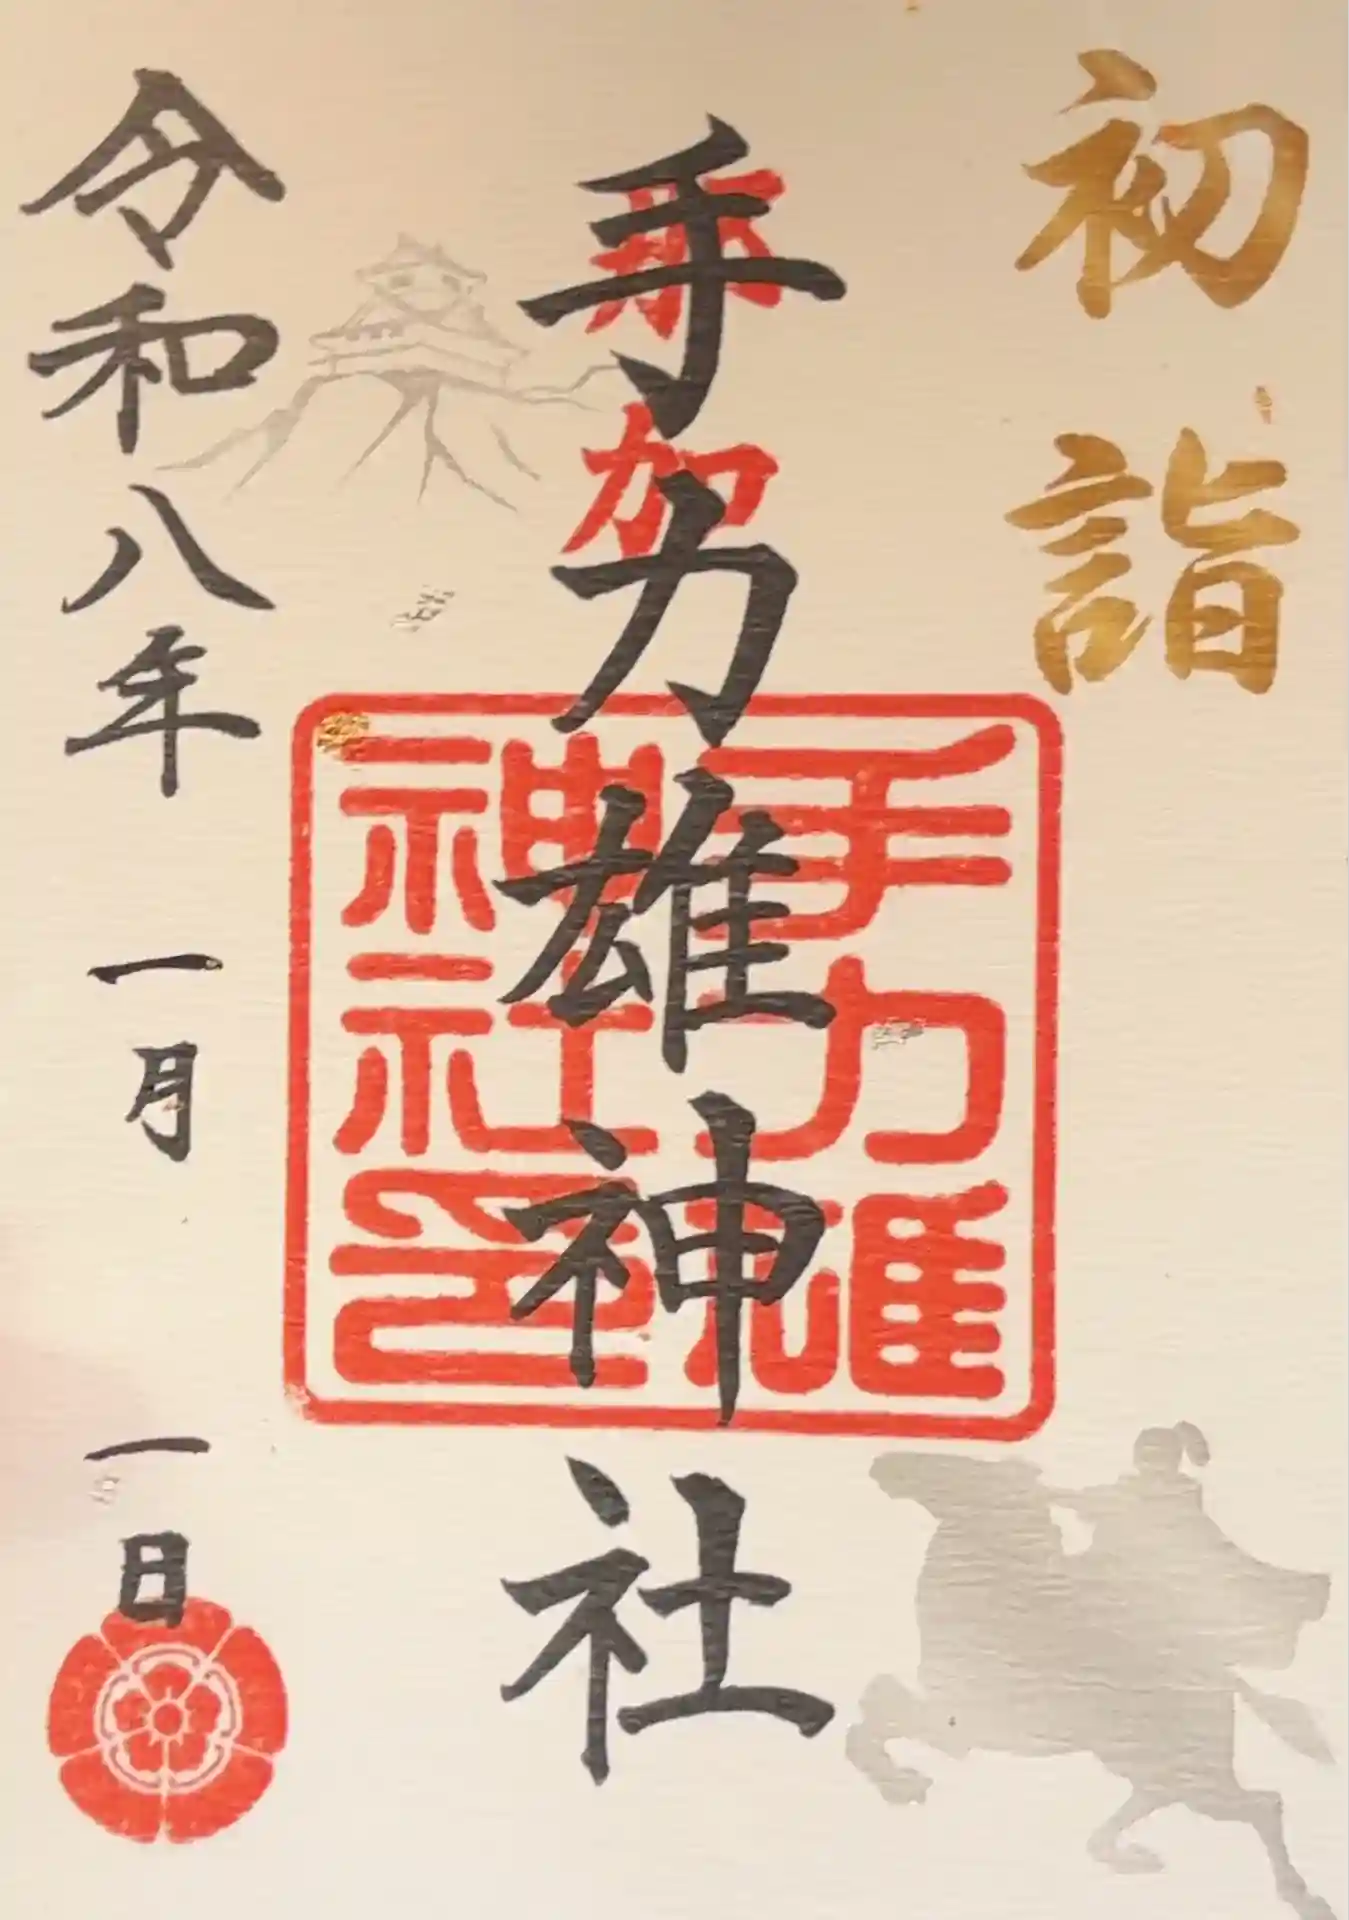 初詣
那加
手力雄神社
手力雄
神社印
令和八年一月一日